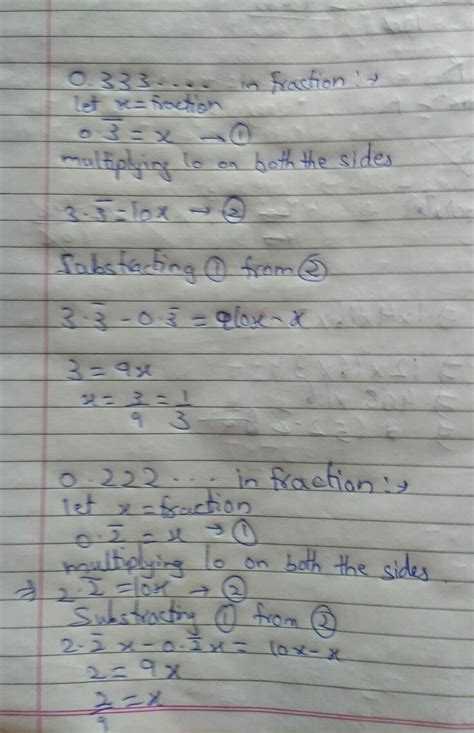 0.333.... in fraction:→
let x = fraction
0.3̅ = x → ①
multiplying 10 on both the sides
3.3̅ = 10x → ②
Substacting ① from ②
3.3̅ - 0.3̅ = 10x - x
3 = 9x
x = 3/9 = 1/3
0.222... in fraction:→
let x = fraction
0.2̅ = x → ①
multiplying 10 on both the sides.
⇒ 2.2̅ = 10x → ②
Substracting ① from ②
2.2̅x - 0.2̅x = 10x - x
2 = 9x
2/9 = x